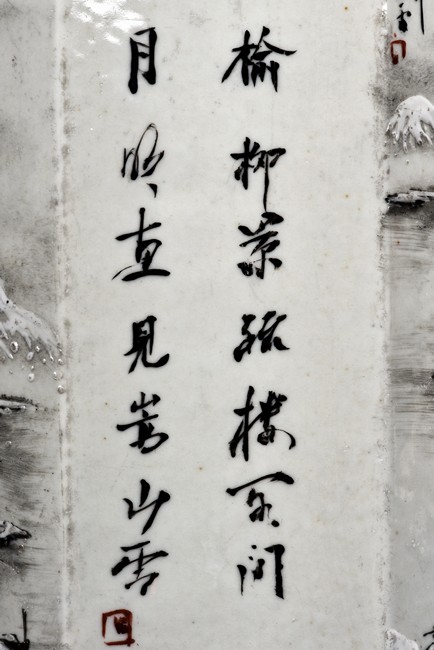 榆柳萧疏楼阁闲
月明直见嵩山雪